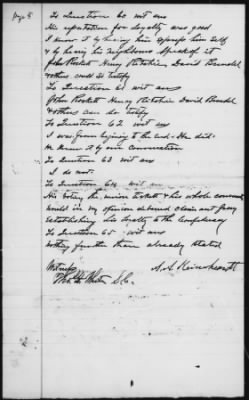 Page 5
To Question 60 wit ans
His reputation for loyalty was good
I know it by hearing him express him self
& by hearing his neighbors speak of it
John Rockett Henry Ritchie David Bundel
& others could so testify
To Question 61 wit ans
John Rockett Henry Ritchie David Bundel
& others can so testify
To Question 62 wit ans
I was from begining to the end. He did.
He knew it by our conversation
To Question 63 wit ans
I do not.
To Question 64 wit ans
His voting the union ticket & his whole
would in my opinion debared him from
establishing his loyalty to the Confederacy
To Question 65 wit ans
nothing further than already stated
Witness
S.C.